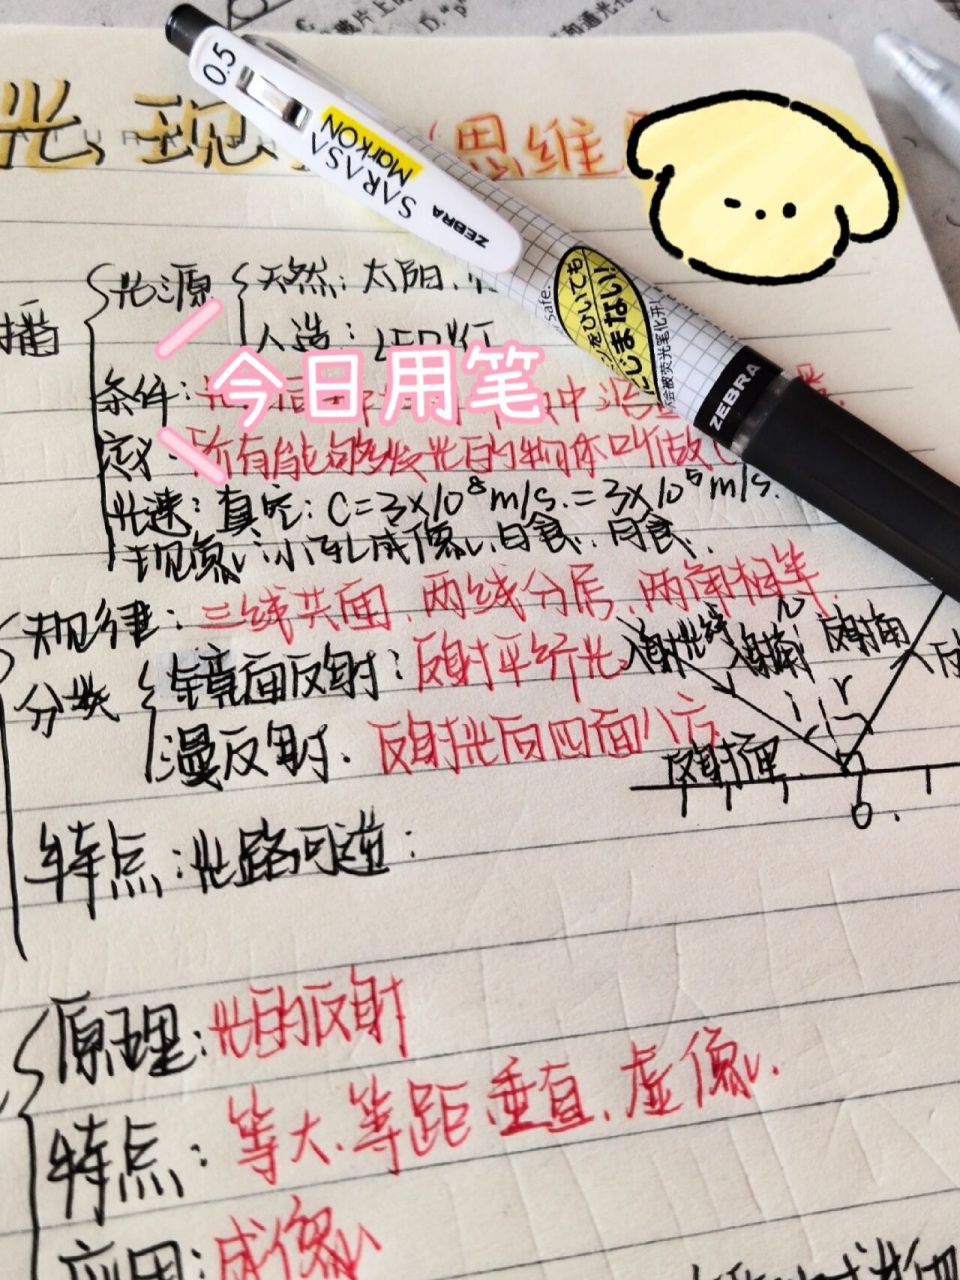 光现
思维
0.5
SARASA
MarkON
ZEBRA
safe.
にじまない!
ZEBRA
播
光源
天然：太阳、
人造：LED灯
今日用笔
条件：光
中沿
定义：所有能够发光的物体叫做
光速：真空：C=3×10⁸m/s.=3×10⁵m/s.
现像：小孔成像、日食、月食、
规律：三线共面、两线分居、两角相等、
分类
镜面反射：反射平行光
漫反射、反射光向四面八方
入射光线
入射角
反射角
N
i
r
反射面
O.
特点：光路可逆：
原理：光的反射
特点：等大、等距、垂直、虚像、
应用：成像